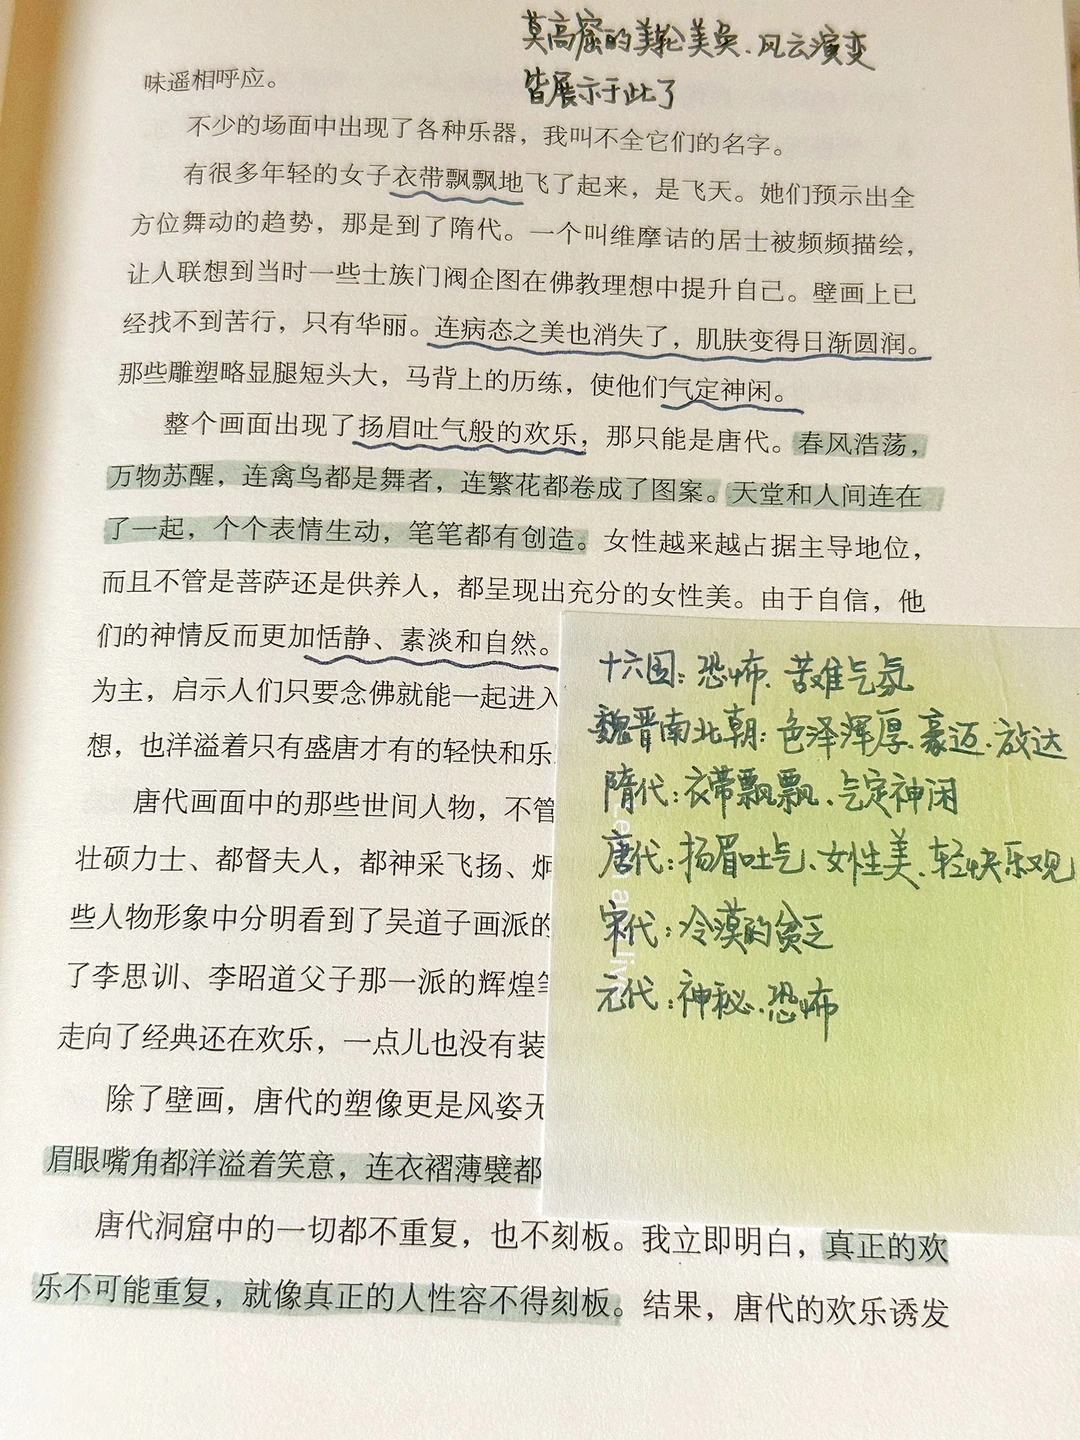 莫高窟的美轮美奂、风云演变
皆展示于此了
味遥相呼应。
不少的场面中出现了各种乐器，我叫不全它们的名字。
有很多年轻的女子衣带飘飘地飞了起来，是飞天。她们预示出全
方位舞动的趋势，那是到了隋代。一个叫维摩诘的居士被频频描绘，
让人联想到当时一些士族门阀企图在佛教理想中提升自己。壁画上已
经找不到苦行，只有华丽。连病态之美也消失了，肌肤变得日渐圆润。
那些雕塑略显腿短头大，马背上的历练，使他们气定神闲。
整个画面出现了扬眉吐气般的欢乐，那只能是唐代。春风浩荡，
万物苏醒，连禽鸟都是舞者，连繁花都卷成了图案。天堂和人间连在
了一起，个个表情生动，笔笔都有创造。女性越来越占据主导地位，
而且不管是菩萨还是供养人，都呈现出充分的女性美。由于自信，他
们的神情反而更加恬静、素淡和自然。
为主，启示人们只要念佛就能一起进入
想，也洋溢着只有盛唐才有的轻快和乐
唐代画面中的那些世间人物，不管
壮硕力士、都督夫人，都神采飞扬、炯
些人物形象中分明看到了吴道子画派的
了李思训、李昭道父子那一派的辉煌笔
走向了经典还在欢乐，一点儿也没有装
除了壁画，唐代的塑像更是风姿无
眉眼嘴角都洋溢着笑意，连衣褶薄襞都
唐代洞窟中的一切都不重复，也不刻板。我立即明白，真正的欢
乐不可能重复，就像真正的人性容不得刻板。结果，唐代的欢乐诱发
十六国：恐怖、苦难气氛
魏晋南北朝：色泽浑厚、豪迈、放达
隋代：衣带飘飘、气定神闲
唐代：扬眉吐气、女性美、轻快乐观
宋代：冷漠的贫乏
元代：神秘、恐怖